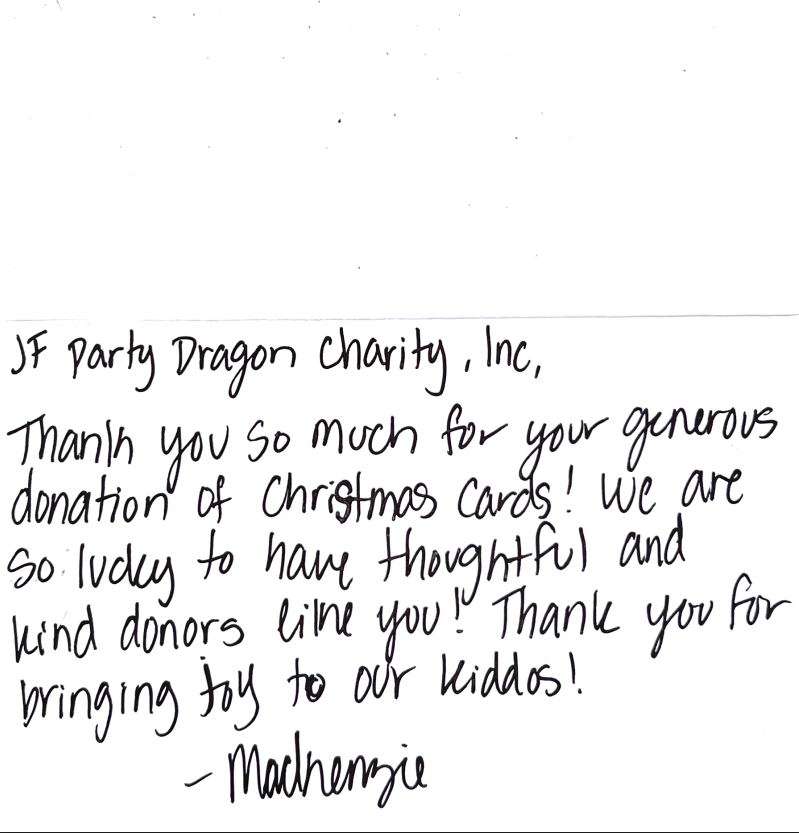 JF Party Dragon Charity, Inc,
Thank you so much for your generous
donation of Christmas Cards! We are
so lucky to have thoughtful and
kind donors like you! Thank you for
bringing joy to our kiddos!
- Mackenzie